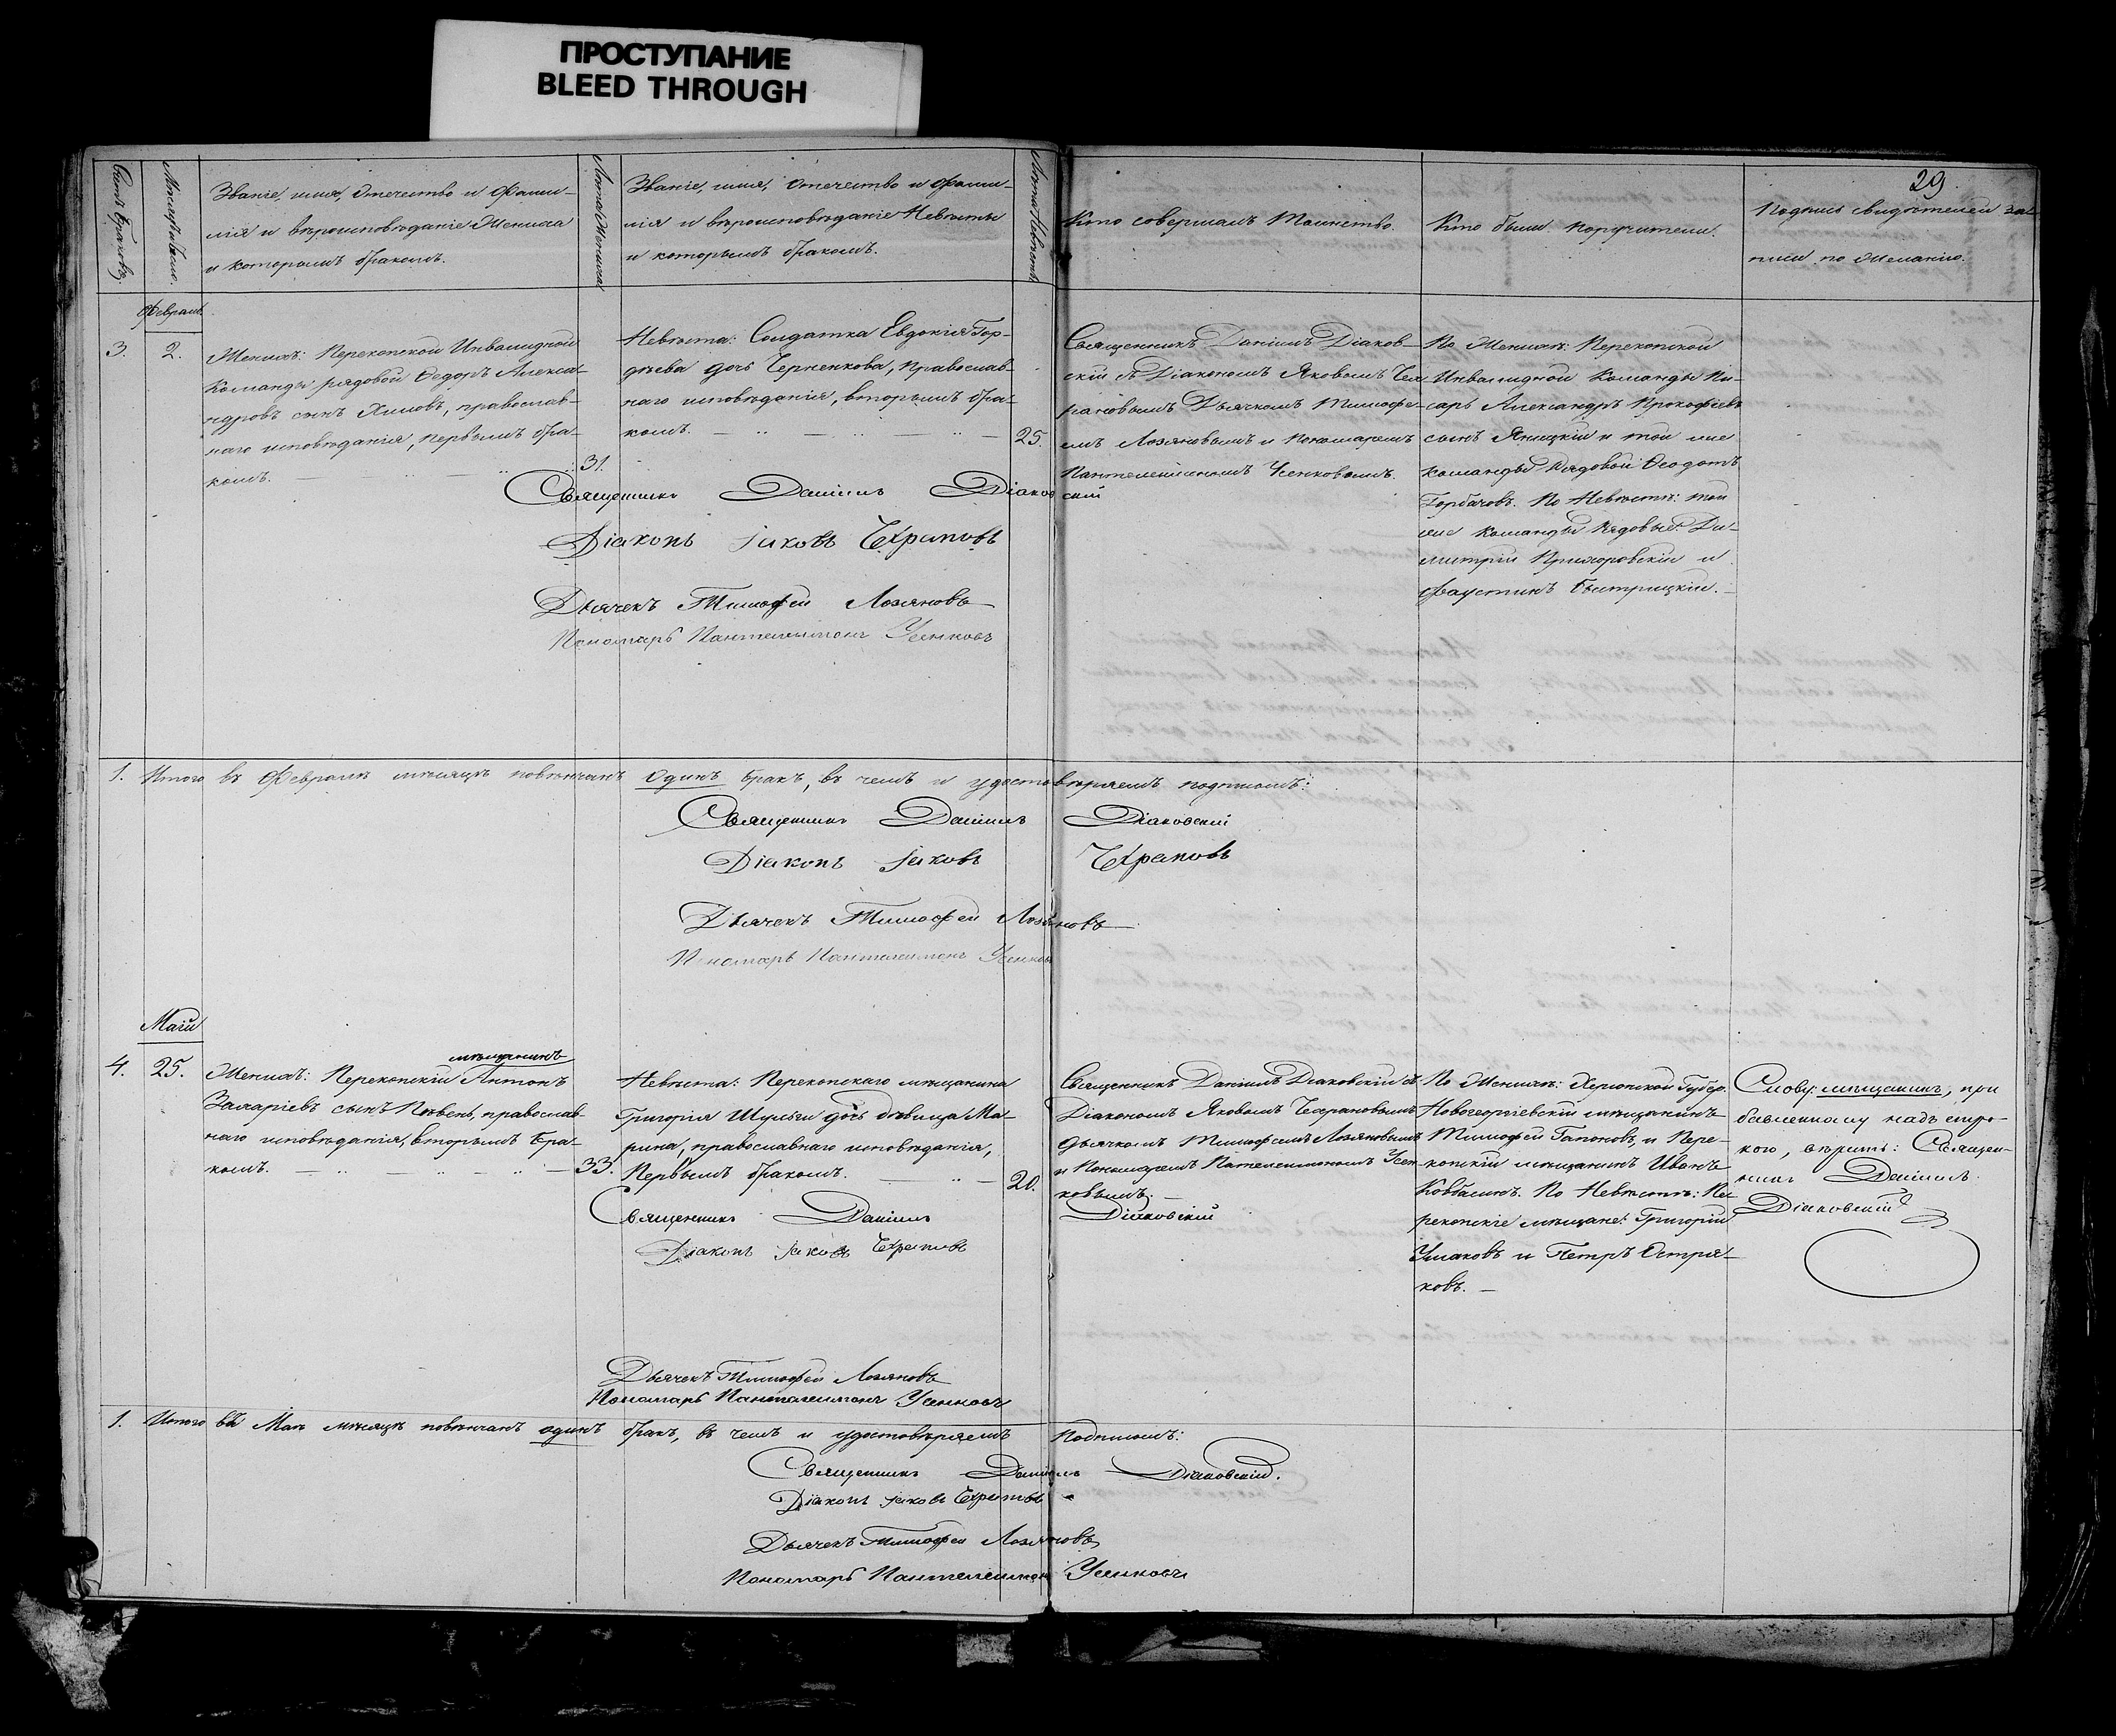 ПРОСТУПАНИЕ
BLEED THROUGH
29
Счетъ браковъ.
Званіе, имя, отечество и фами-
лія и вѣроисповѣданіе Жениха
и которымъ бракомъ.
Лѣта Жениха
Званіе, имя, отечество и фами-
лія и вѣроисповѣданіе Невѣсты
и которымъ бракомъ.
Лѣта Невѣсты
Кто совершалъ Таинство.
Кто были поручители.
Подпись свидѣтелей за-
писи по желанію.
Февраль
3.
2.
Женихъ: Перекопской Инвалидной
Команды рядовой Ѳедоръ Алекса-
ндровъ сынъ православ-
наго исповѣданія, первымъ бра-
комъ.
31.
Невѣста: Солдатка Евдокія Гор-
дѣева дочь Черненкова, православ-
наго исповѣданія, вторымъ бра-
комъ.
25.
Священникъ Даніилъ Діаков-
скій съ Діакономъ Яковомъ Чех-
рановымъ Дьячкомъ Тимофе-
емъ Лозяновымъ и Пономаремъ
Пантелеимономъ Усенковымъ.
По Женихѣ: Перекопской
Инвалидной Команды Пи-
сарь Александръ Прокофіевъ
сынъ Яницкій и той же
команды Рядовой Ѳеодотъ
Горбачовъ. По Невѣстѣ: той
же команды Рядовые: Ди-
митрій Пригоровскій и
Фаустинъ Быстрицкій.
Священникъ Даніилъ Діаковскій
Діаконъ Іаковъ Чехрановъ
Дьячекъ Тимофей Лозяновъ
Пономарь Пантелеимонъ Усенковъ
1. Итого въ Февралѣ мѣсяцѣ повѣнчанъ одинъ бракъ, въ чемъ и удостовѣряемъ подписомъ:
Священникъ Даніилъ Діаковскій
Діаконъ Іаковъ Чехрановъ
Дьячекъ Тимофей Лозяновъ
Пономарь Пантелеимонъ Усенковъ
Маій
4.
25.
мѣщанинъ
Женихъ: Перекопскій Антонъ
Захаріевъ сынъ Пѣвень, православ-
наго исповѣданія, вторымъ бра-
комъ.
33.
Невѣста: Перекопскаго мѣщанина
Григорія Шульги дочь дѣвица Ма-
рина, православнаго исповѣданія,
Первымъ бракомъ.
20.
Священникъ Даніилъ Діаковскій съ
Діакономъ Яковомъ Чехрановымъ
Дьячкомъ Тимофеемъ Лозяновымъ
и Пономаремъ Пателеимономъ Усен-
ковымъ.
По Женихѣ: Херсонской Губер.
Новогеоргіевскій мѣщанинъ
Тимофей Гапоновъ, и Пере-
копскій мѣщанинъ Иванъ
Ковбасинъ. По Невѣстѣ: Пе-
рекопскіе мѣщане: Григорій
Ушаковъ и Петръ Остря-
ковъ.
Слову: мѣщанинъ, при
бавленному надъ стро-
кою, вѣрить: Священ-
никъ Даніилъ
Діаковскій
Священникъ Даніилъ Діаковскій
Діаконъ Іаковъ Чехрановъ
Дьячекъ Тимофей Лозяновъ
Пономарь Пантелеимонъ Усенковъ
1. Итого въ Маѣ мѣсяцѣ повѣнчанъ одинъ бракъ, въ чемъ и удостовѣряемъ подписомъ:
Священникъ Даніилъ Діаковскій.
Діаконъ Іаковъ Чехрановъ
Дьячекъ Тимофей Лозяновъ
Пономарь Пантелеимонъ Усенковъ